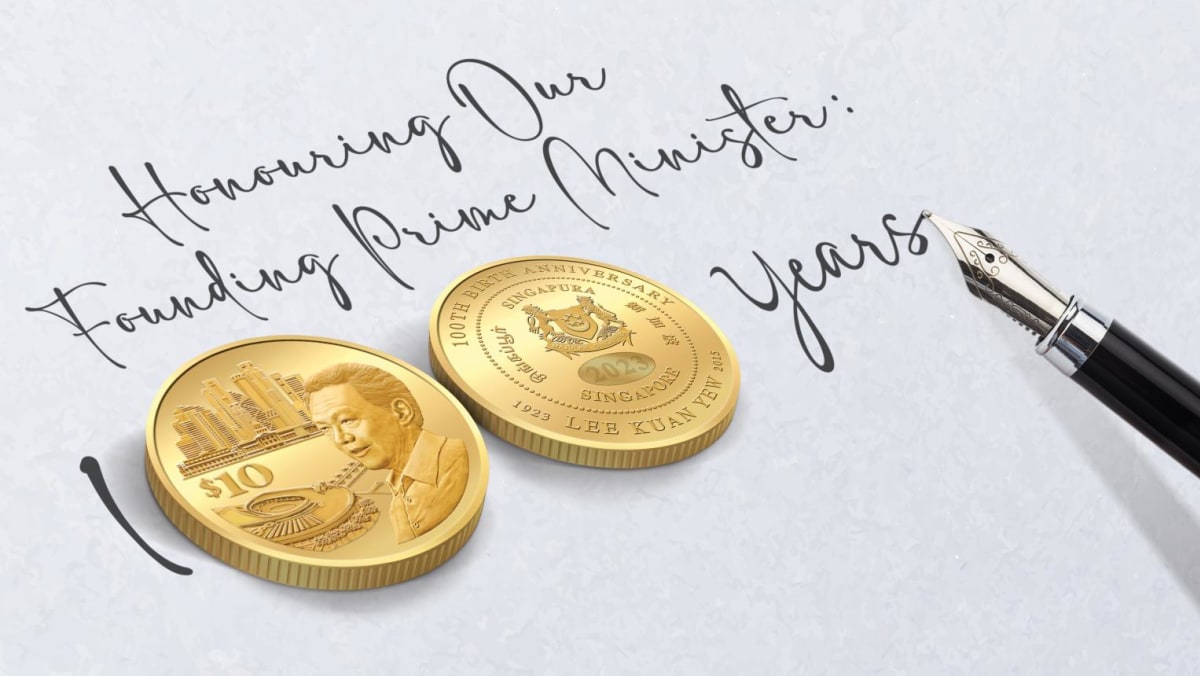 Honouring Our
Founding Prime Minister:
1
Years
$10
100TH BIRTH ANNIVERSARY
SINGAPURA
新加坡
சிங்கப்பூர்
2023
SINGAPORE
1923 LEE KUAN YEW 2015